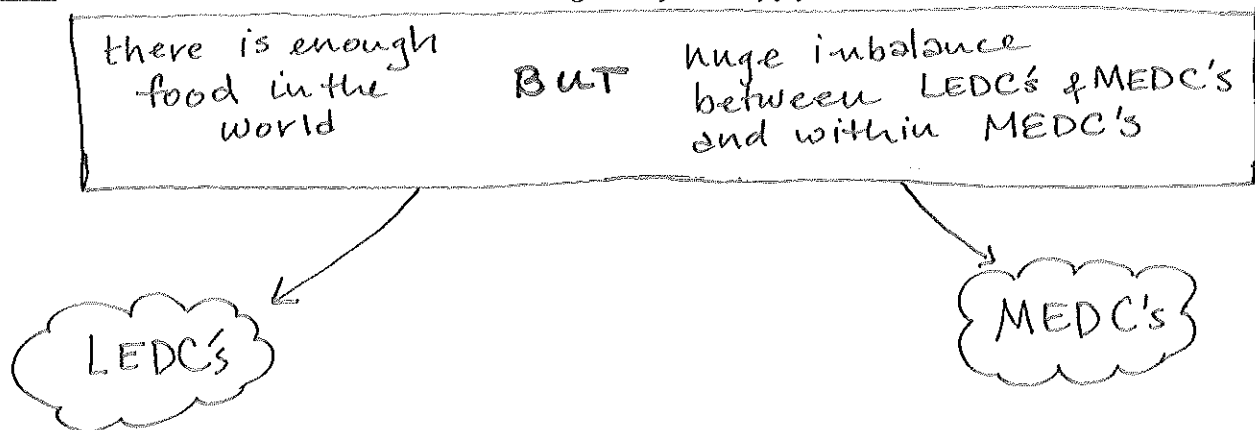 there is enough
food in the
world
BUT
huge inbalance
between LEDC's & MEDC's
and within MEDC's
LEDC's
MEDC's